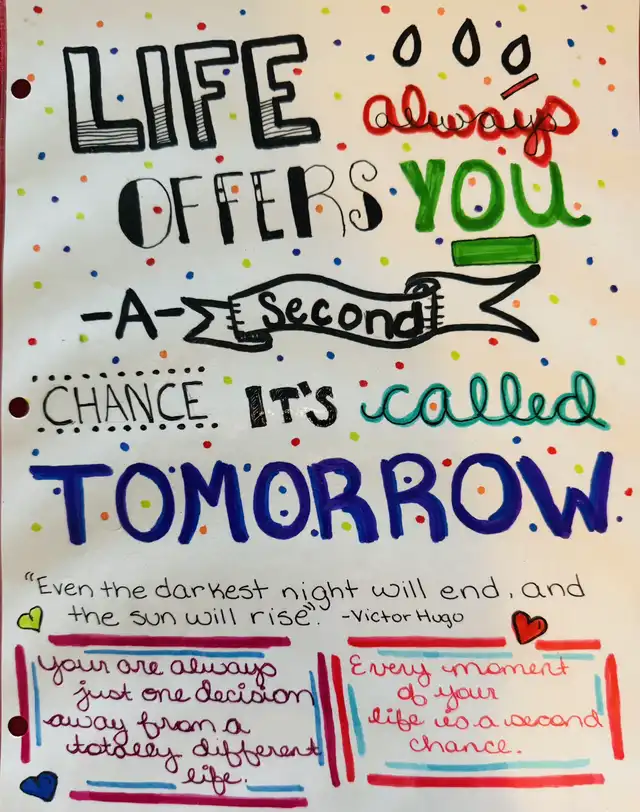 LIFE always
OFFERS YOU
-A- Second
CHANCE IT'S called
TOMORROW
"Even the darkest night will end, and
the sun will rise". -Victor Hugo
Your are always
just one decision
away from a
totally different
life.
Every moment
of your
life is a second
chance.